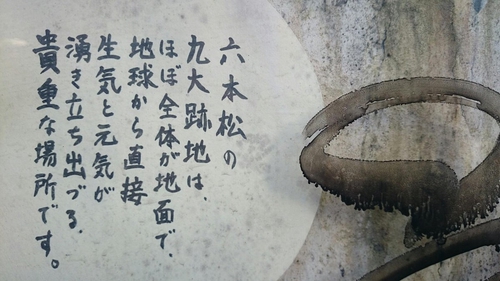 六本松の
九大跡地は、
ほぼ全体が地面で、
地球から直接
生気と元気が
湧き立ち出づる、
貴重な場所です。